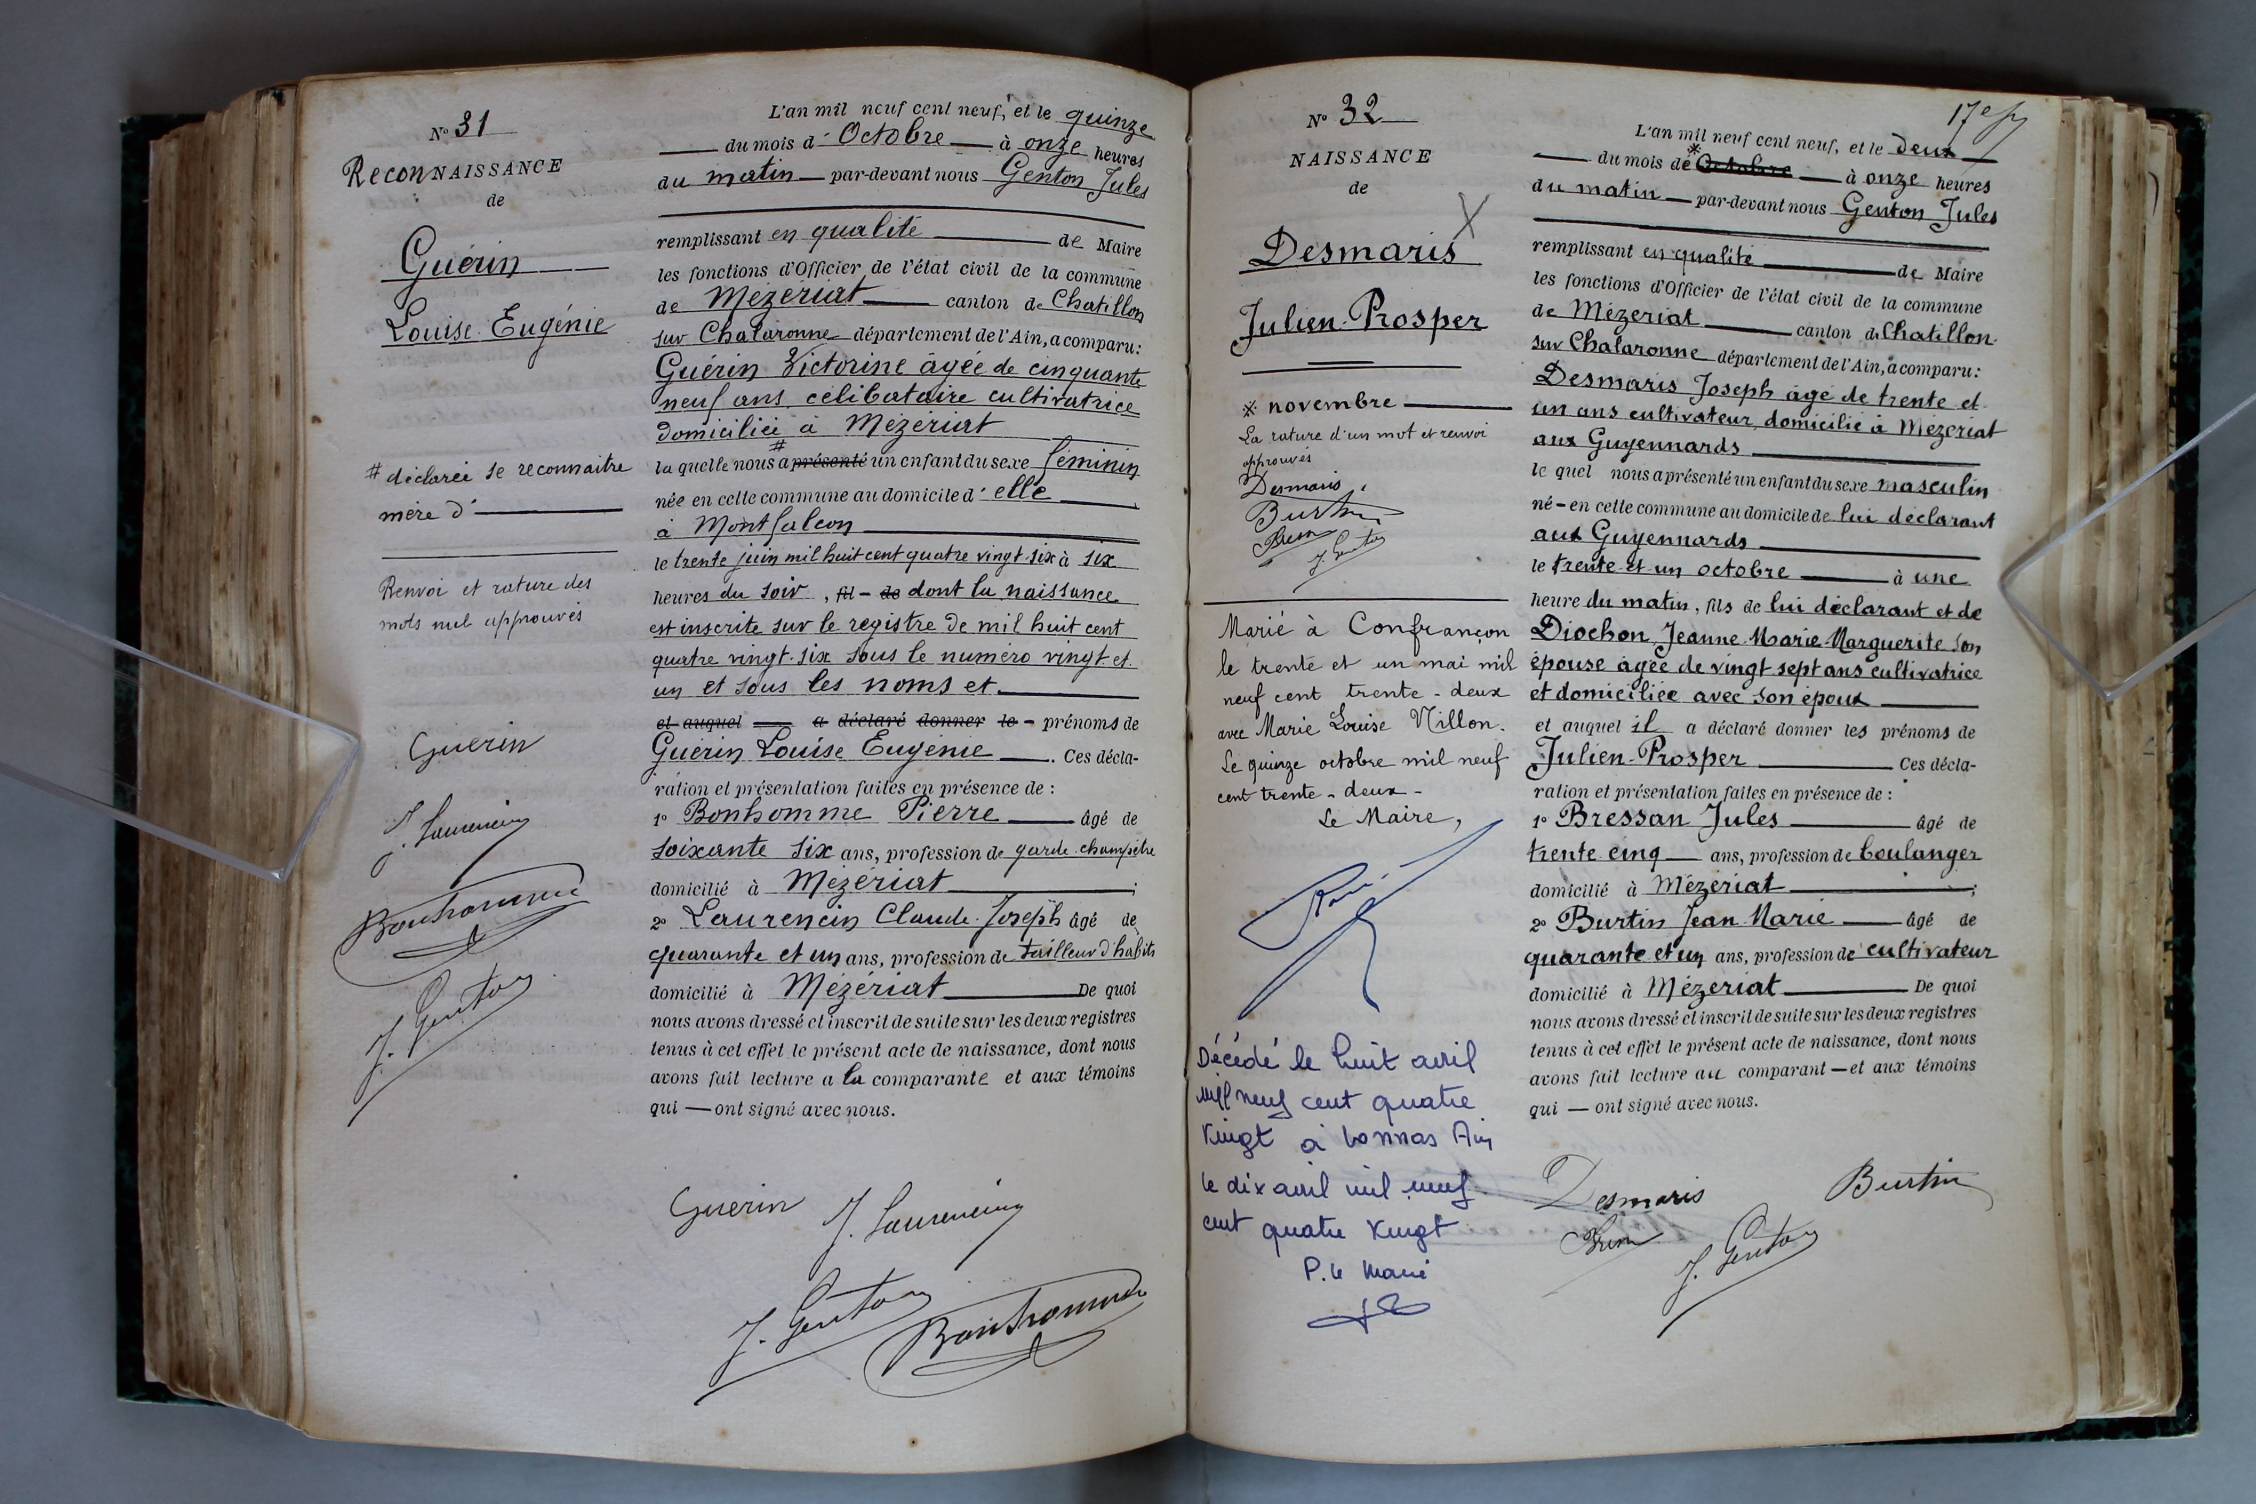 N° 31
ReconNAISSANCE
de
Guérin
Louise Eugénie
# déclarée se reconnaitre
mère d'
Renvoi et rature des
mots nuls approuvés
Guerin
J. Laurencin
Bonhomme
J. Genton
L'an mil neuf cent neuf, et le quinze
du mois d' Octobre à onze heures
du matin par-devant nous Genton Jules
remplissant en qualité de Maire
les fonctions d'Officier de l'état civil de la commune
de Mézériat canton de Chatillon
sur Chalaronne département de l'Ain, a comparu :
Guérin Victorine âgée de cinquante
neuf ans célibataire cultivatrice
domiciliée à Mézériat
la quelle nous # a présenté un enfant du sexe féminin
née en cette commune au domicile d' elle
à Montfalcon
le trente juin mil huit cent quatre vingt-six à six
heures du soir, fil - de dont la naissance
est inscrite sur le registre de mil huit cent
quatre vingt-six sous le numéro vingt et
un et sous les noms et
et auquel a déclaré donner le - prénoms de
Guérin Louise Eugénie . Ces décla-
ration et présentation faites en présence de :
1° Bonhomme Pierre âgé de
soixante six ans, profession de garde-champêtre
domicilié à Mézériat ;
2° Laurencin Claude-Joseph âgé de
quarante et un ans, profession de tailleur d'habits
domicilié à Mézériat De quoi
nous avons dressé et inscrit de suite sur les deux registres
tenus à cet effet le présent acte de naissance, dont nous
avons fait lecture a la comparante et aux témoins
qui — ont signé avec nous.
Guerin J. Laurencin
J. Genton Bonhomme
N° 32
NAISSANCE
de
Desmaris X
Julien-Prosper
※ novembre
La rature d'un mot et renvoi
approuvés
Desmaris
Burtin
J. Genton
Marié à Confrançon
le trente et un mai mil
neuf cent trente-deux
avec Marie Louise Nillon.
Le quinze octobre mil neuf
cent trente-deux-
Le Maire,
Décédé le huit avril
mil neuf cent quatre
vingt à Vonnas Ain
le dix avril mil neuf
cent quatre vingt
P. le Maire
17e
L'an mil neuf cent neuf, et le deux
du mois de ※ Octobre à onze heures
du matin par-devant nous Genton Jules
remplissant en qualité de Maire
les fonctions d'Officier de l'état civil de la commune
de Mézériat canton de Chatillon-
sur Chalaronne département de l'Ain, a comparu :
Desmaris Joseph âgé de trente et
un ans cultivateur, domicilié à Mézériat
aux Guyennards
le quel nous a présenté un enfant du sexe masculin
né - en cette commune au domicile de lui déclarant
aux Guyennards
le trente et un octobre à une
heure du matin, fils de lui déclarant et de
Diochon Jeanne-Marie Marguerite son
épouse âgée de vingt sept ans cultivatrice
et domiciliée avec son époux
et auquel il a déclaré donner les prénoms de
Julien-Prosper Ces décla-
ration et présentation faites en présence de :
1° Bressan Jules âgé de
trente cinq ans, profession de boulanger
domicilié à Mézériat ;
2° Burtin Jean Marie âgé de
quarante et un ans, profession de cultivateur
domicilié à Mézériat De quoi
nous avons dressé et inscrit de suite sur les deux registres
tenus à cet effet le présent acte de naissance, dont nous
avons fait lecture au comparant — et aux témoins
qui — ont signé avec nous.
Desmaris Burtin
J. Genton